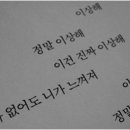 이상해
정말 이상해
이건 진짜 이상해
없어도 니가 느껴져
이
정말
이건